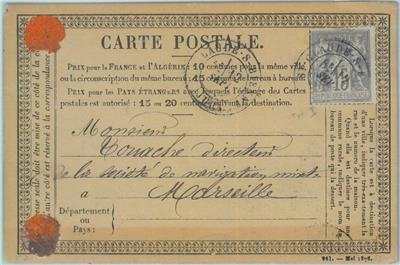 CARTE POSTALE.
PRIX pour la FRANCE et l'ALGÉRIE: 10 centimes pour la même ville
ou la circonscription du même bureau; 15 de bureau à bureau.
PRIX pour les PAYS ÉTRANGERS avec lesquels l'échange des Cartes
postales est autorisé: 15 ou 20 centimes, suivant la destination.
Monsieur
Touache directeur
de la société de navigation mixte
a
Marseille
Département
ou
Pays:
Lorsque la carte est à destination
d'une ville, indiquer très-exactement la
rue et le numéro de la maison.
Quand elle est destinée pour une
commune rurale, indiquer le nom du
bureau de poste qui la dessert.
adresse seule doit être mise de ce côté de la
autre est réservé à la correspondance